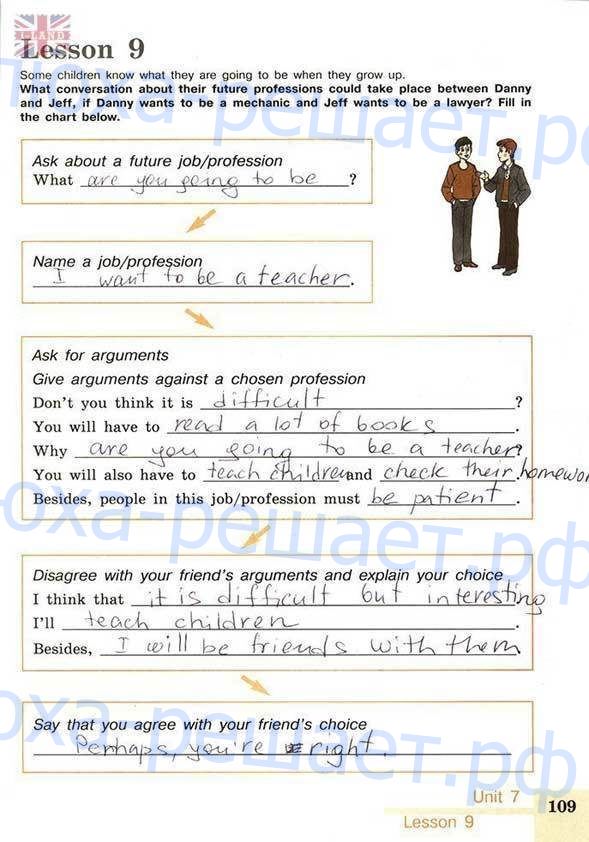 I-LAND
Lesson 9
Some children know what they are going to be when they grow up.
What conversation about their future professions could take place between Danny
and Jeff, if Danny wants to be a mechanic and Jeff wants to be a lawyer? Fill in
the chart below.
Ask about a future job/profession
What are you going to be ?
Name a job/profession
I want to be a teacher.
Ask for arguments
Give arguments against a chosen profession
Don't you think it is difficult ?
You will have to read a lot of books .
Why are you going to be a teacher?
You will also have to teach children and check their homewor
Besides, people in this job/profession must be patient .
Disagree with your friend's arguments and explain your choice
I think that it is difficult but interesting
I'll teach children .
Besides, I will be friends with them.
Say that you agree with your friend's choice
Perhaps, you're right.
Unit 7
Lesson 9
109
юха-решает.рф
юха-решает.рф
юха-решает.рф